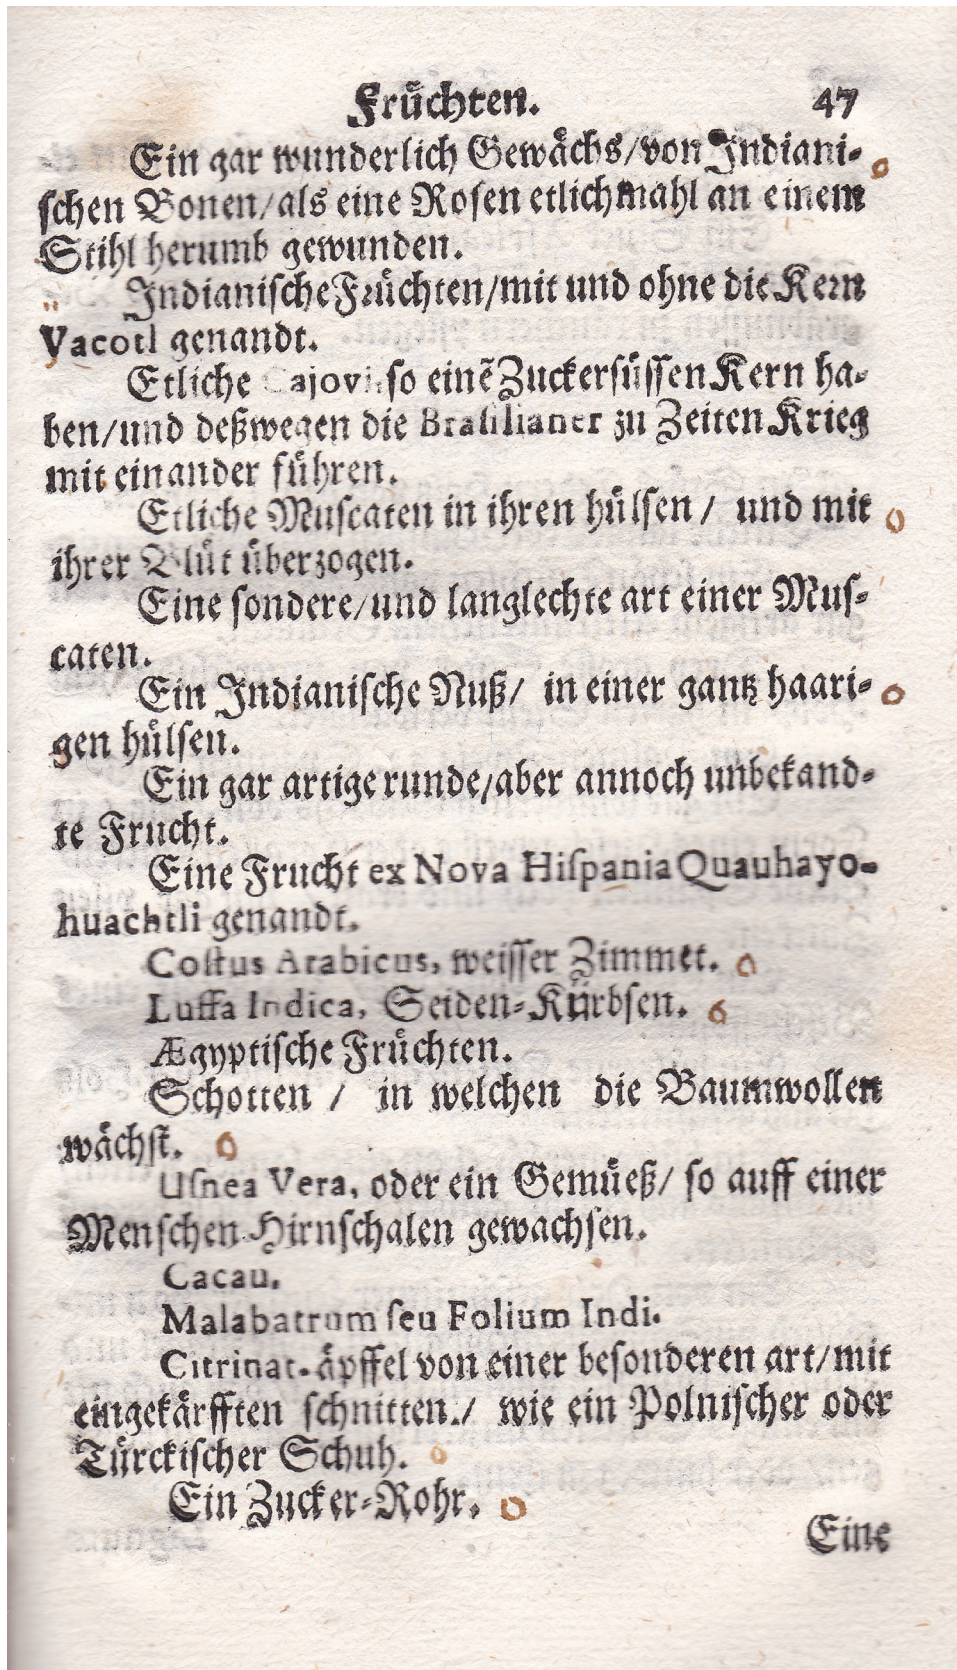 Fruͤchten. 47
Ein gar wunderlich Gewaͤchs/von Indiani-
ſchen Bonen/als eine Roſen etlichmahl an einem
Stihl herumb gewunden.
Indianiſche Fruͤchten/mit und ohne die Kern
Vacotl genandt.
Etliche Cajovi, ſo einẽ Zuckerſuͤſſen Kern ha-
ben/und deßwegen die Braſilianer zu Zeiten Krieg
mit einander fuͤhren.
Etliche Muſcaten in ihren huͤlſen / und mit
ihrer Bluͤt uͤberzogen.
Eine ſondere/und langlechte art einer Muſ-
caten.
Ein Indianiſche Nuß/ in einer gantz haari-
gen huͤlſen.
Ein gar artige runde/aber annoch unbekand-
te Frucht.
Eine Frucht ex Nova Hiſpania Quauhayo-
huachtli genandt.
Coſtus Arabicus, weiſſer Zimmet.
Luffa Indica, Seiden-Kuͤrbſen.
Ægyptiſche Fruͤchten.
Schotten / in welchen die Baumwollen
waͤchſt.
Uſnea Vera, oder ein Gemuͤeß/ ſo auff einer
Menſchen-Hirnſchalen gewachſen.
Cacau.
Malabatrum ſeu Folium Indi.
Citrinat-aͤpffel von einer beſonderen art/mit
eingekaͤrfften ſchnitten./ wie ein Polniſcher oder
Tuͤrckiſcher Schuh.
Ein Zucker-Rohr.
Eine